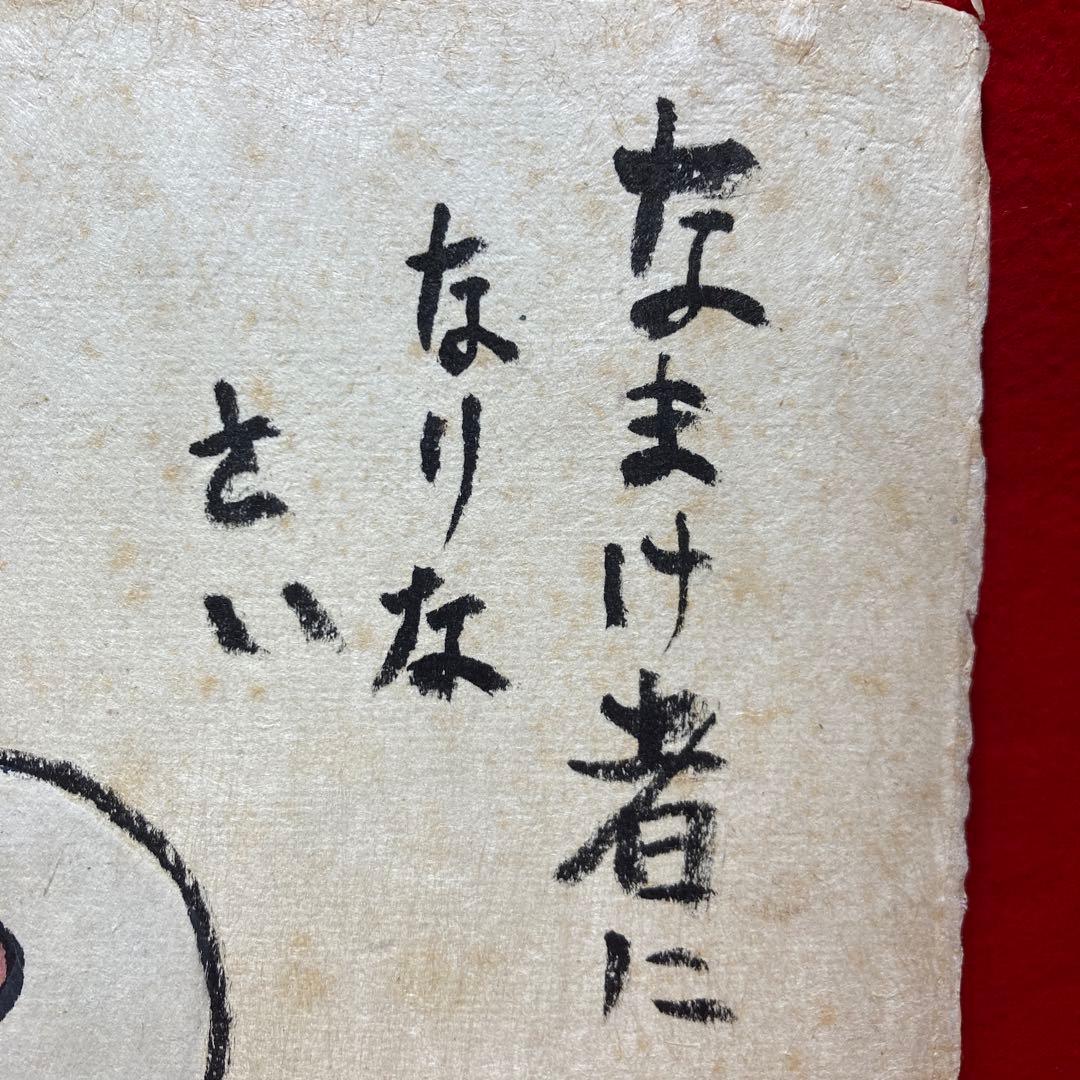 なまけ者に
なりな
さい